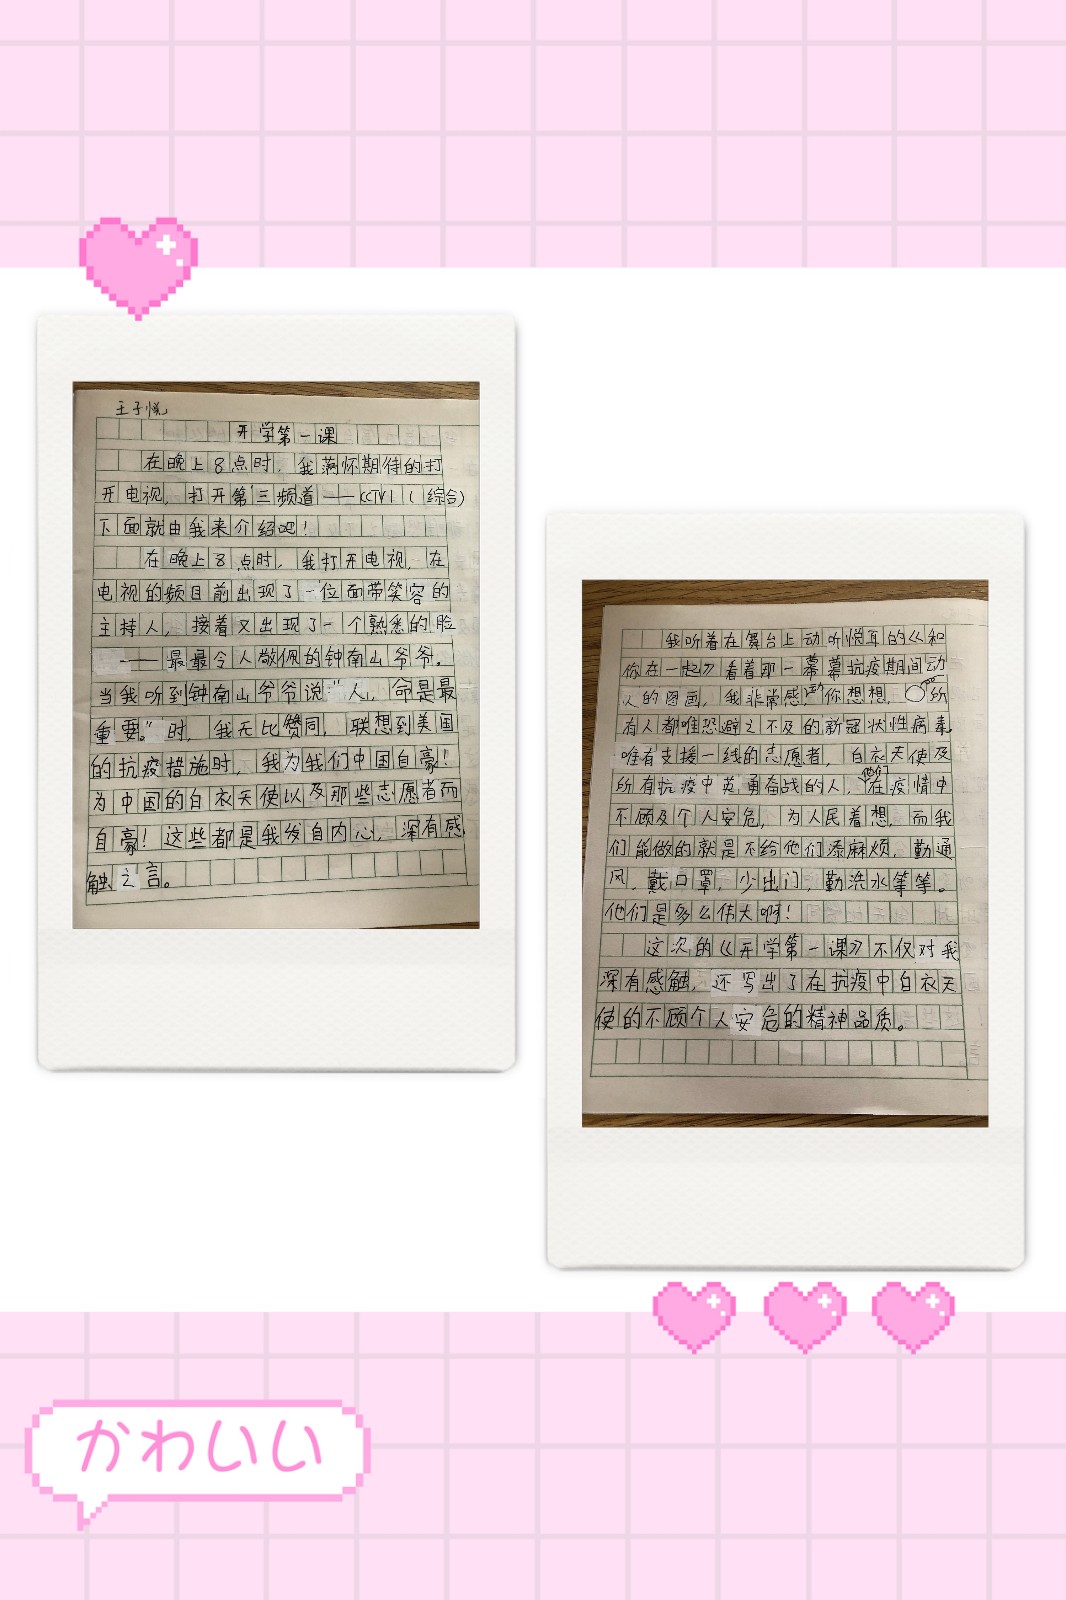 王子悦
开学第一课
在晚上8点时，我满怀期待的打
开电视，打开第三频道——CCTV1（综合）
下面就由我来介绍吧！
在晚上8点时，我打开电视，在
电视的频目前出现了一位面带笑容的
主持人，接着又出现了一个熟悉的脸
——最最令人敬佩的钟南山爷爷。
当我听到钟南山爷爷说“人，命是最
重要。”时，我无比赞同，联想到美国
的抗疫措施时，我为我们中国自豪！
为中国的白衣天使以及那些志愿者而
自豪！这些都是我发自内心，深有感
触之言。
我听着在舞台上动听悦耳的《和
你在一起》看着那一幕幕抗疫期间动
人的图画，我非常感动，你想想，所
有人都唯恐避之不及的新冠状性病毒，
唯有支援一线的志愿者，白衣天使及
所有抗疫中英勇奋战的人，他们在疫情中
不顾及个人安危，为人民着想，而我
们能做的就是不给他们添麻烦，勤通
风，戴口罩，少出门，勤洗水等等。
他们是多么伟大啊！
这次的《开学第一课》不仅对我
深有感触，还写出了在抗疫中白衣天
使的不顾个人安危的精神品质。
かわいい